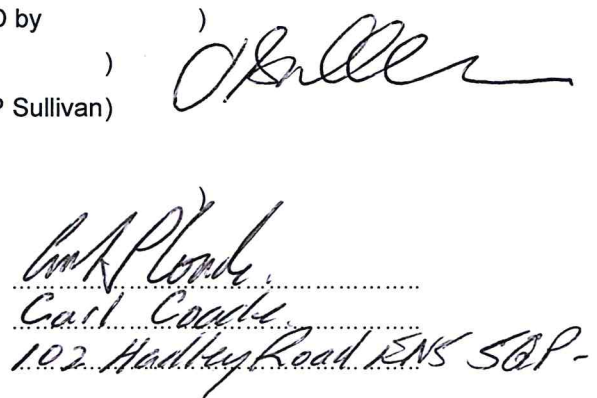 D by )
)
P Sullivan)
)
Carl Coade
102 Hadley Road EN5 5QP-